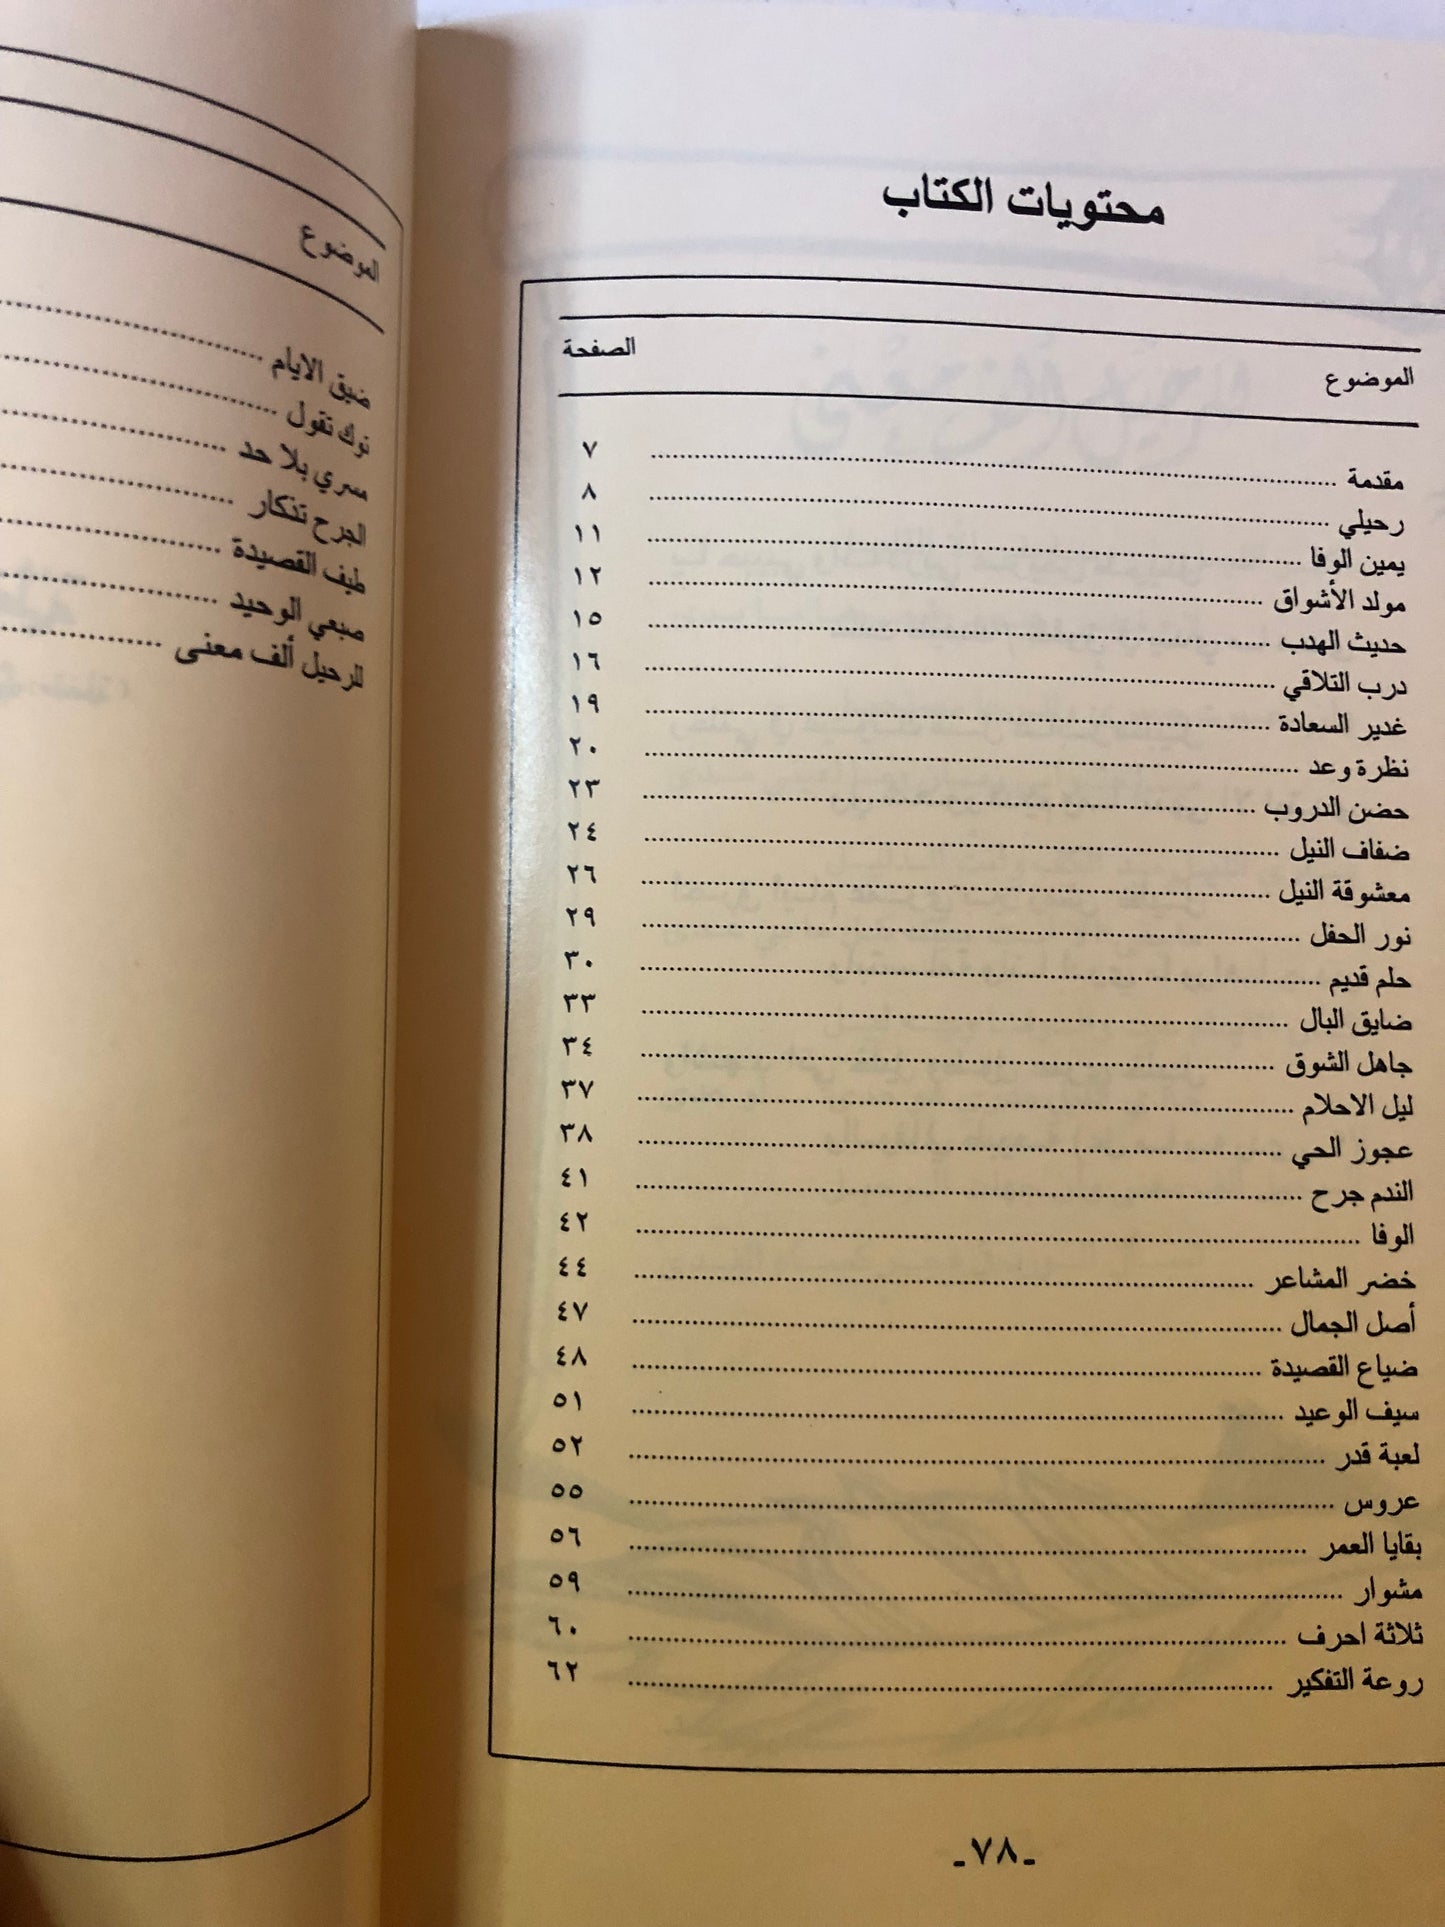 محتويات الكتاب
الموضوع الصفحة
مقدمة ........ ٧
رحيلي ........ ٨
يمين الوفا ........ ١١
مولد الأشواق ........ ١٢
حديث الهدب ........ ١٥
درب التلاقي ........ ١٦
غدير السعادة ........ ١٩
نظرة وعد ........ ٢٠
حضن الدروب ........ ٢٣
ضفاف النيل ........ ٢٤
معشوقة النيل ........ ٢٦
نور الحفل ........ ٢٩
حلم قديم ........ ٣٠
ضايق البال ........ ٣٣
جاهل الشوق ........ ٣٤
ليل الاحلام ........ ٣٧
عجوز الحي ........ ٣٨
الندم جرح ........ ٤١
الوفا ........ ٤٢
خضر المشاعر ........ ٤٤
أصل الجمال ........ ٤٧
ضياع القصيدة ........ ٤٨
سيف الوعيد ........ ٥١
لعبة قدر ........ ٥٢
عروس ........ ٥٥
بقايا العمر ........ ٥٦
مشوار ........ ٥٩
ثلاثة احرف ........ ٦٠
روعة التفكير ........ ٦٢
-٧٨-
الموضوع
ضيق الايام ........
توك تقول ........
سري بلا حد ........
الجرح تذكار ........
طيف القصيدة ........
الوحيد ........
للرحيل ألف معنى ........